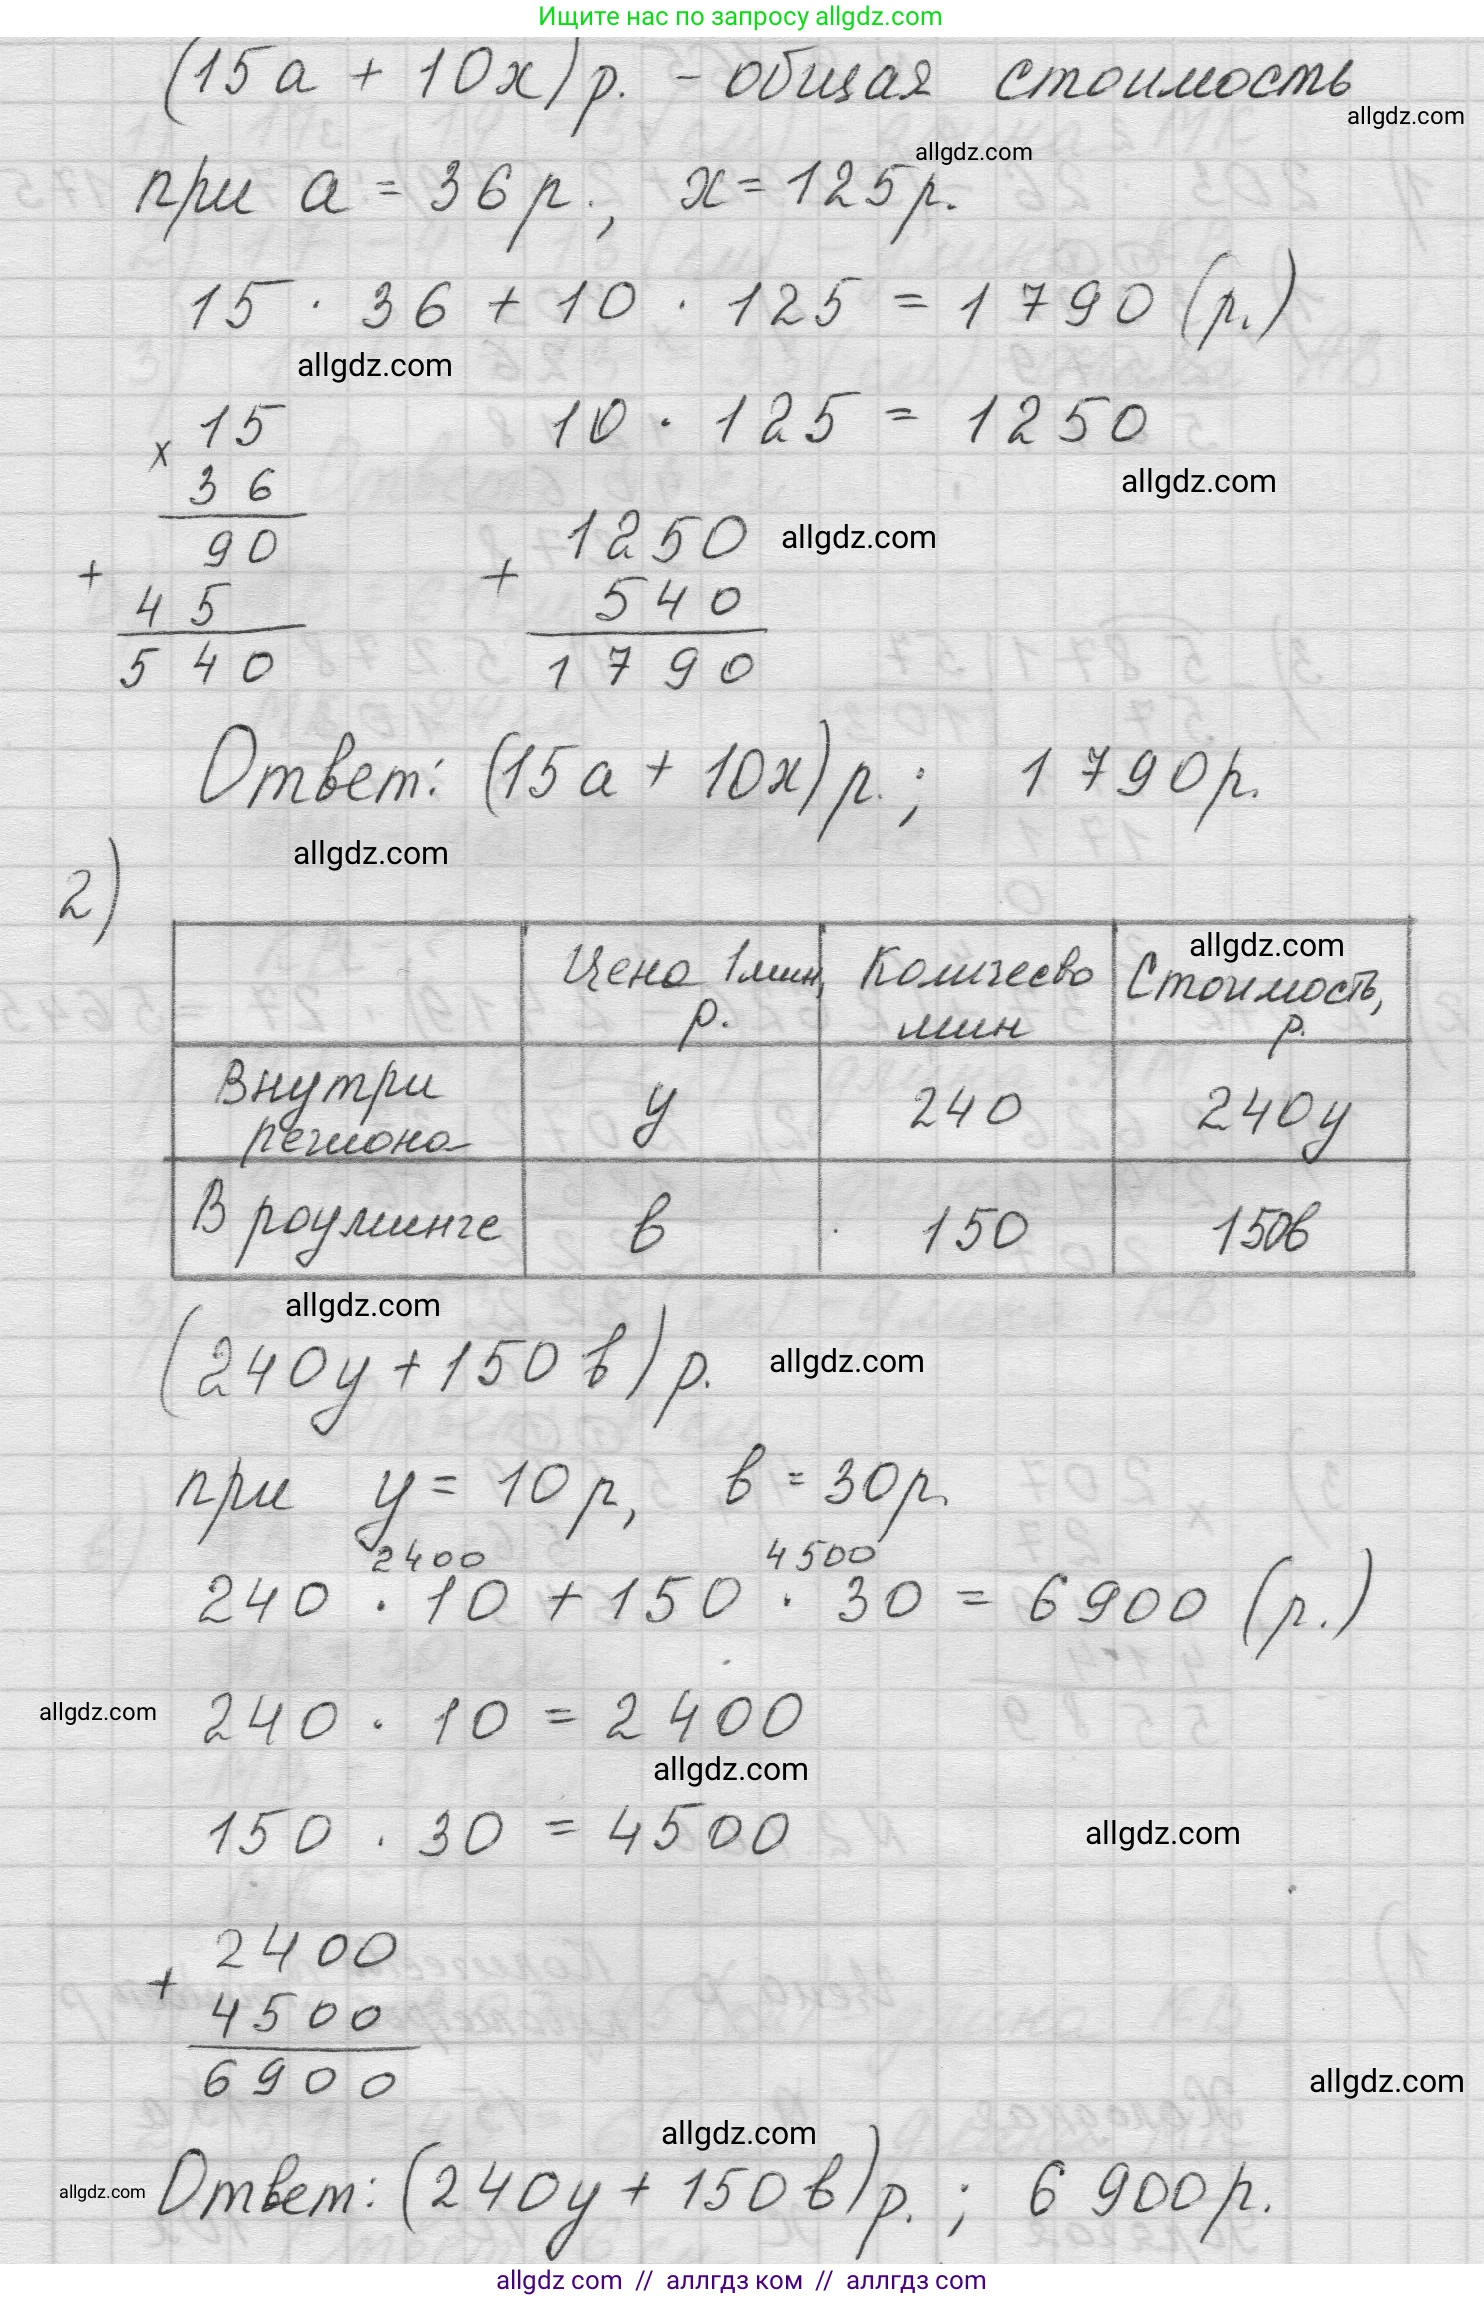 Ищите нас по запросу allgdz.com
(15a + 10x) р. - общая стоимость
allgdz.com
allgdz.com
при a = 36 р., x = 125 р.
15 · 36 + 10 · 125 = 1790 (р.)
allgdz.com
15
10 · 125 = 1250
x
36
allgdz.com
90
1250
allgdz.com
+
+
45
540
540
1790
Ответ: (15a + 10x) р.; 1790 р.
allgdz.com
2)
allgdz.com
Цена 1 мин, Количесво Стоимость,
р. мин р.
Внутри
региона y 240 240y
В роуминге в 150 150в
allgdz.com
(240y + 150в) р.
allgdz.com
при y = 10 р, в = 30 р.
2400 4500
240 · 10 + 150 · 30 = 6900 (р.)
allgdz.com
240 · 10 = 2400
allgdz.com
150 · 30 = 4500
allgdz.com
2400
+
4500
6900
allgdz.com
allgdz.com
allgdz.com
Ответ: (240y + 150в) р.; 6 900 р.
allgdz com // аллгдз ком // аллгдз com